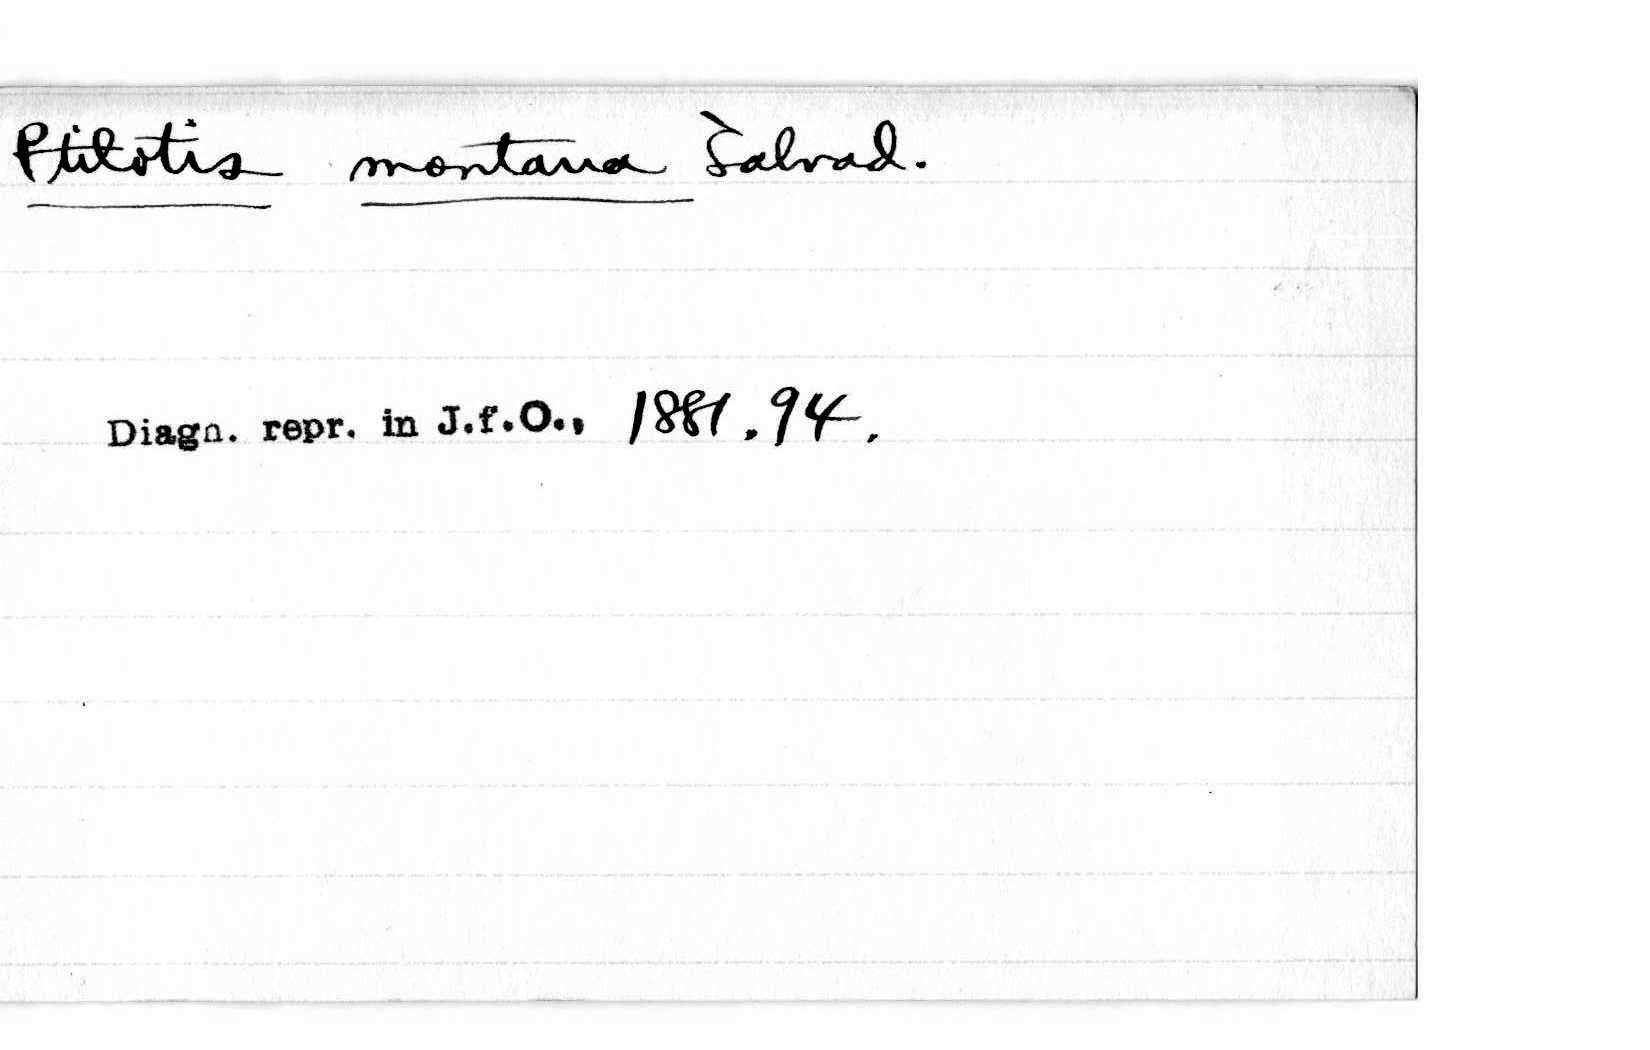 Ptilotis montana Salvad.
Diagn. repr. in J.f.O., 1881.94.